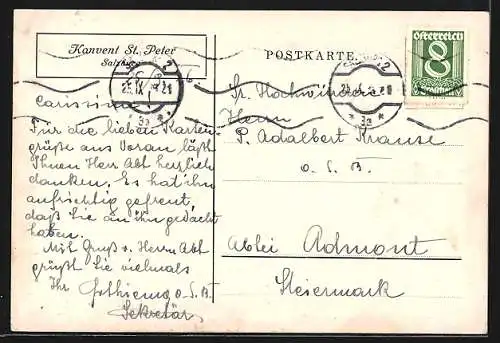 Konvent St. Peter
Salzburg
POSTKARTE
Österreich
8
Groschen
2
25.IX.
21
* 3a *
Carissime
Für die lieben Karten-
grüße aus Vorau läßt
Ihnen Herr Abt herzlich
danken. Es hat ihn
aufrichtig gefreut,
daß Sie an ihn gedacht
haben.
Mit Gruß v. Herrn Abt
grüßt Sie vielmals
Ihr O.S.B.
Sekretär
Sr. Hochwürden
Herrn
P. Adalbert Krause
O.S.B.
Abtei Admont
Steiermark